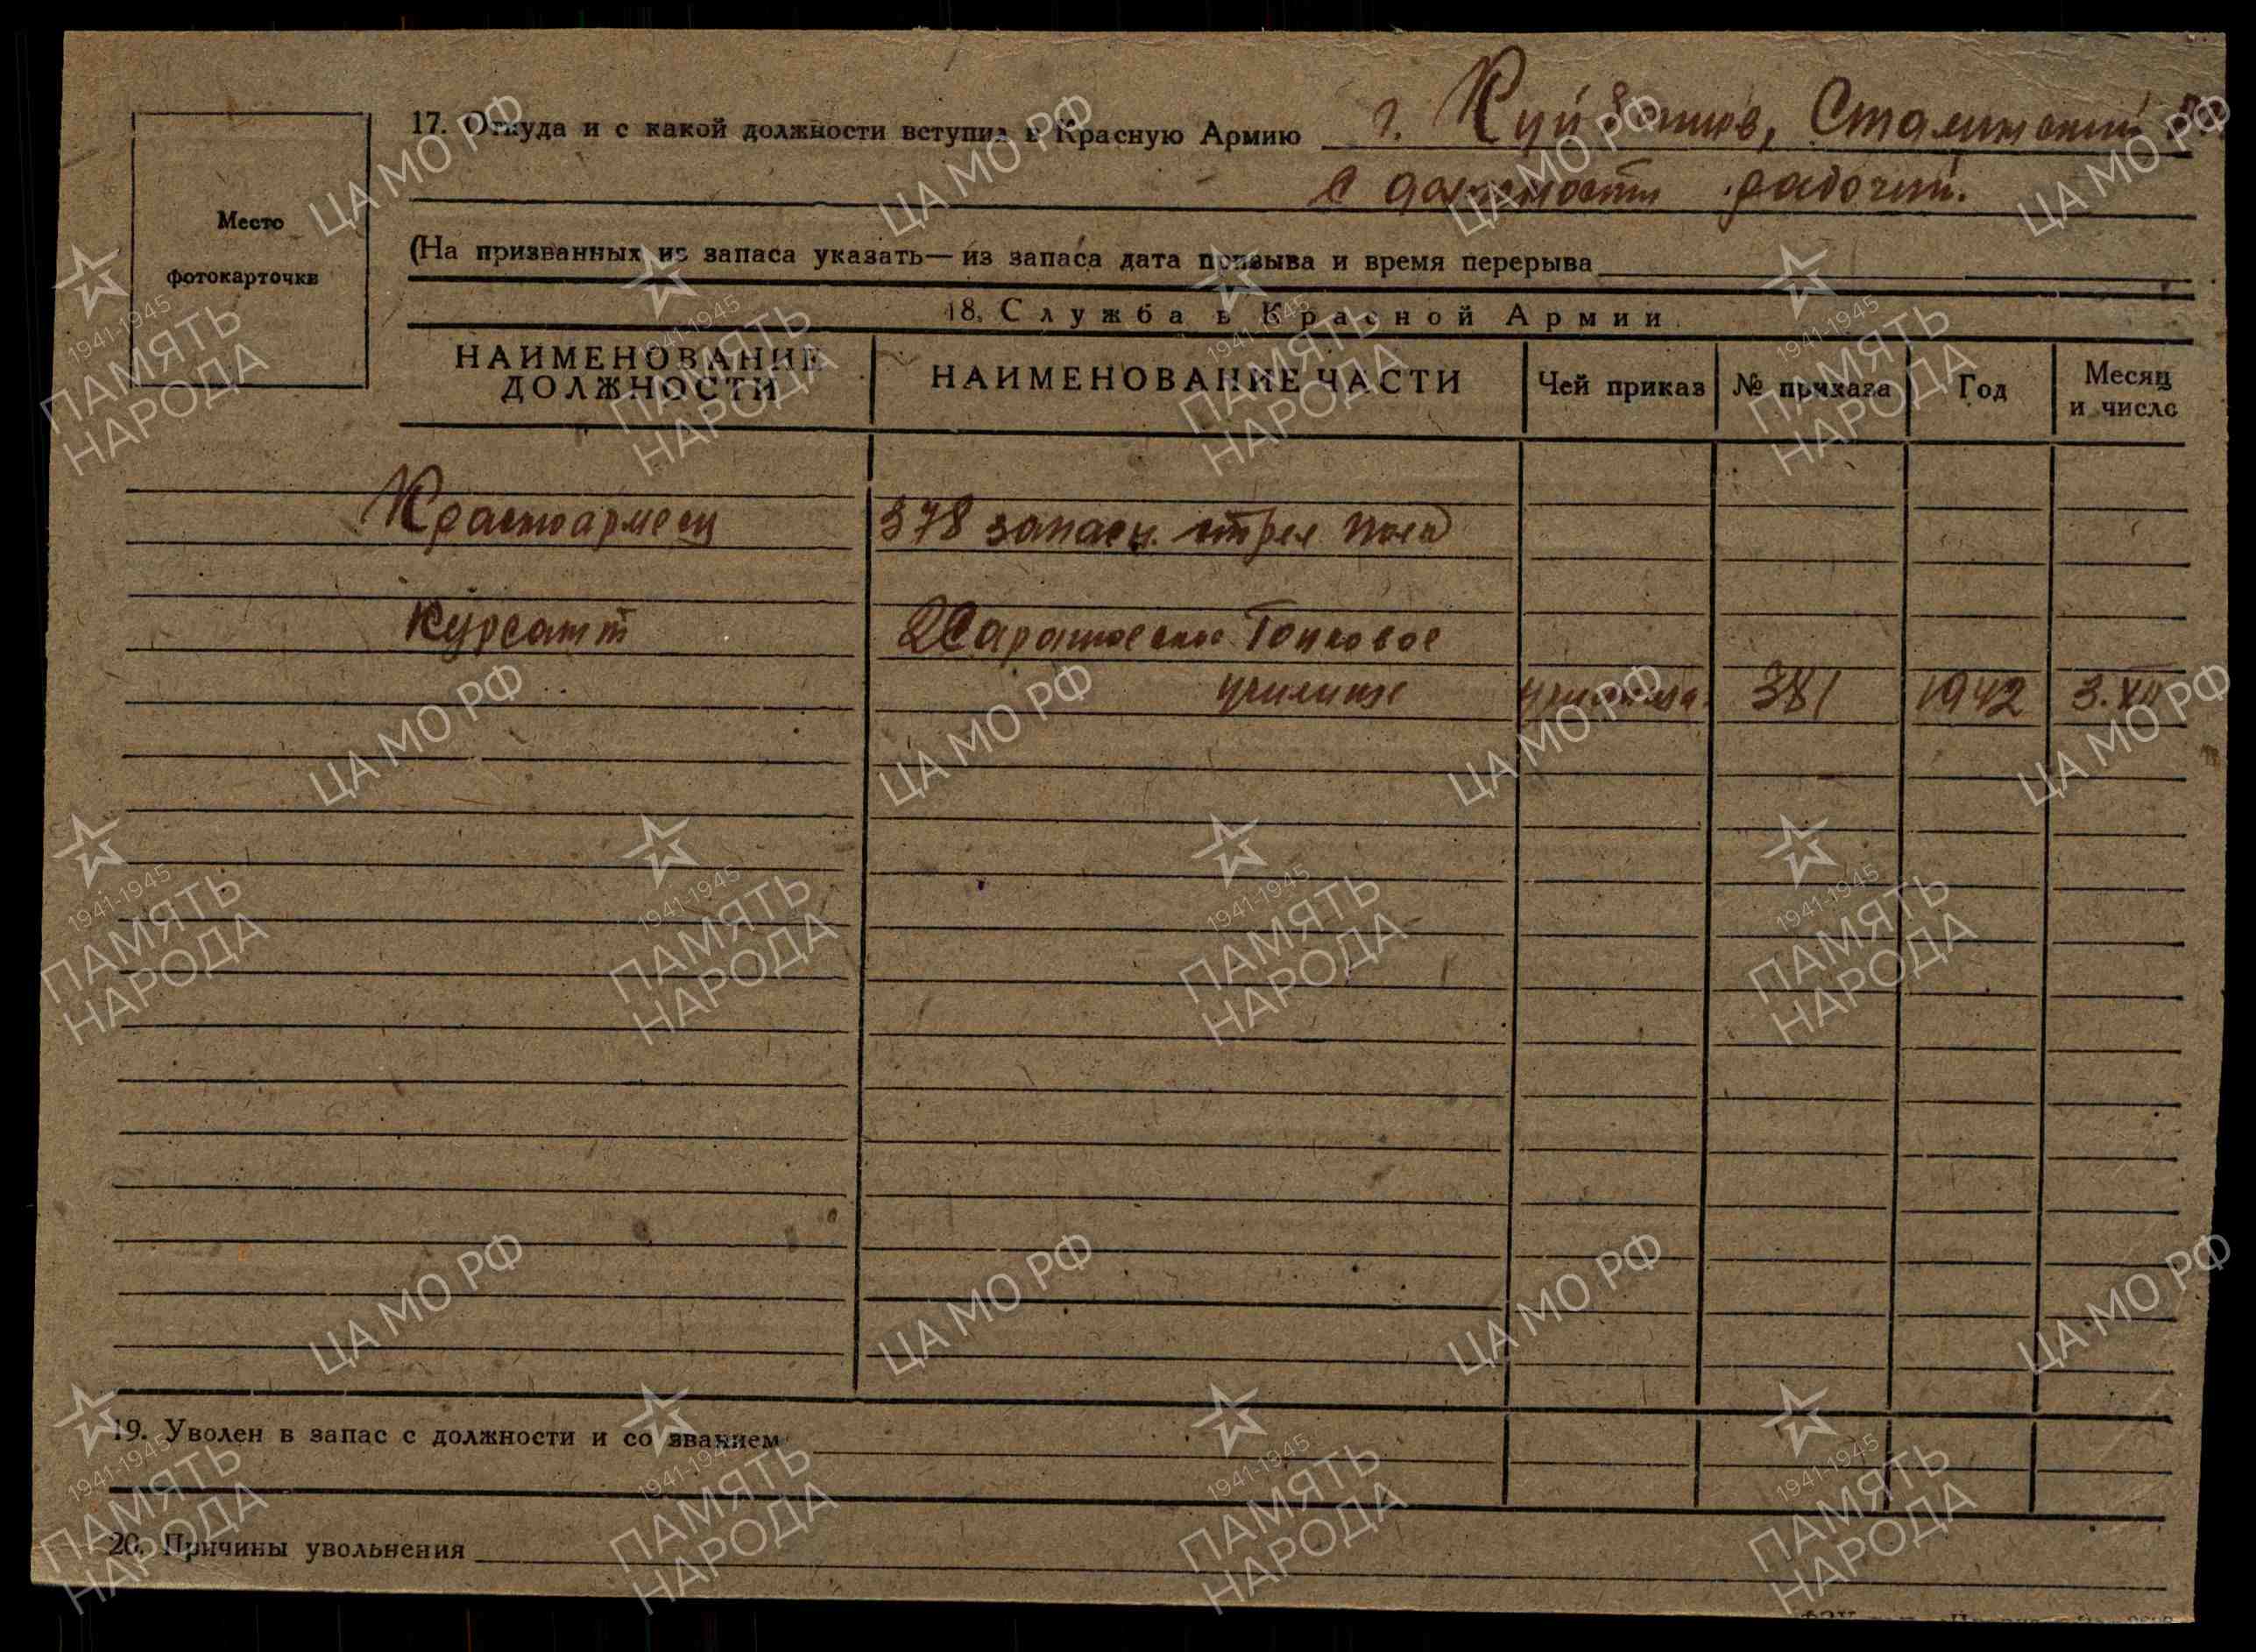 Место
фотокарточки
17. Откуда и с какой должности вступил в Красную Армию г. Куйбышев, Сталинский
с должности рабочий.
(На призванных из запаса указать—из запаса дата призыва и время перерыва
18. Служба в Красной Армии
НАИМЕНОВАНИЕ
ДОЛЖНОСТИ
НАИМЕНОВАНИЕ ЧАСТИ
Чей приказ
№ приказа
Год
Месяц
и число
Красноармеец 378 запасн. стрел полк
Курсант 2 Саратовское Танковое
училище училища 381 1942 3.XII
19. Уволен в запас с должности и со званием
20. Причины увольнения
ЦА МО РФ
1941-1945
ПАМЯТЬ
НАРОДА